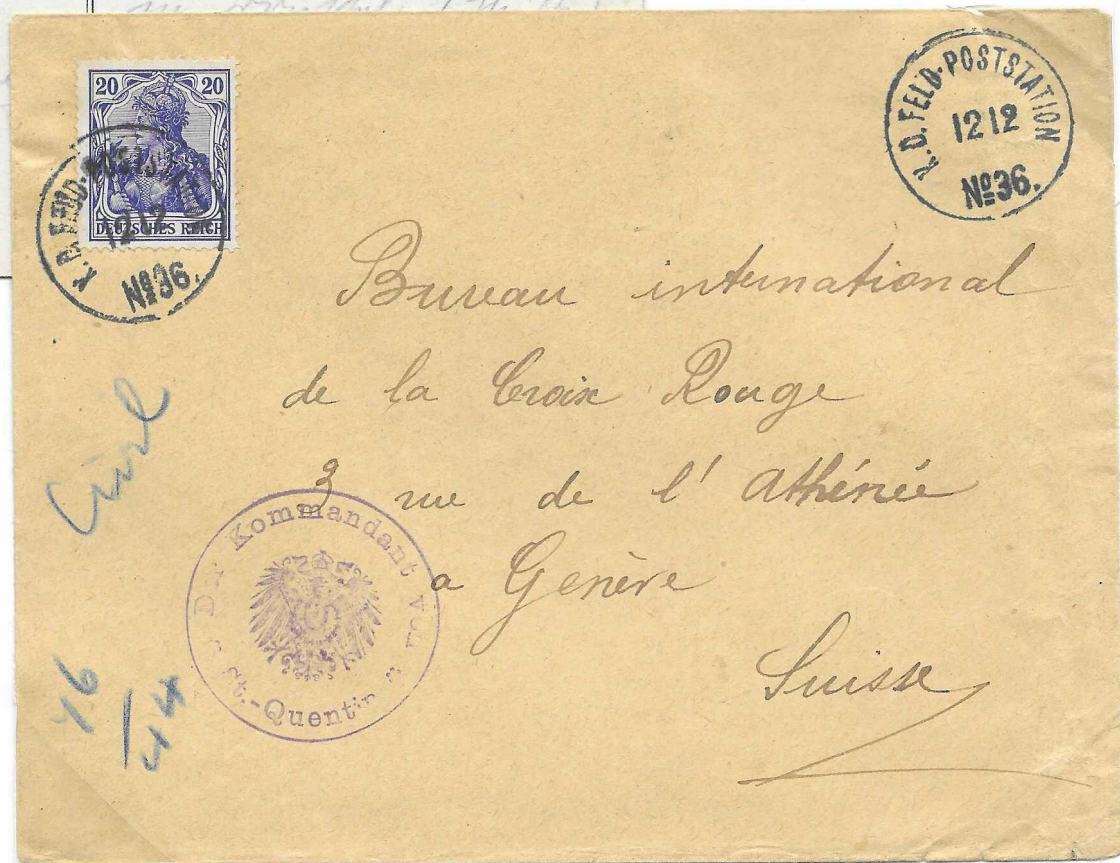 20 20
DEUTSCHES REICH
K.D. FELD-POSTSTATION
12 12
No 36.
K.D. FELD-POSTSTATION
12 12
No 36.
Bureau international
de la Croix Rouge
3 rue de l'Athénée
a Genève
Suisse
Civil
Der Kommandant von
St.-Quentin
16
/
44